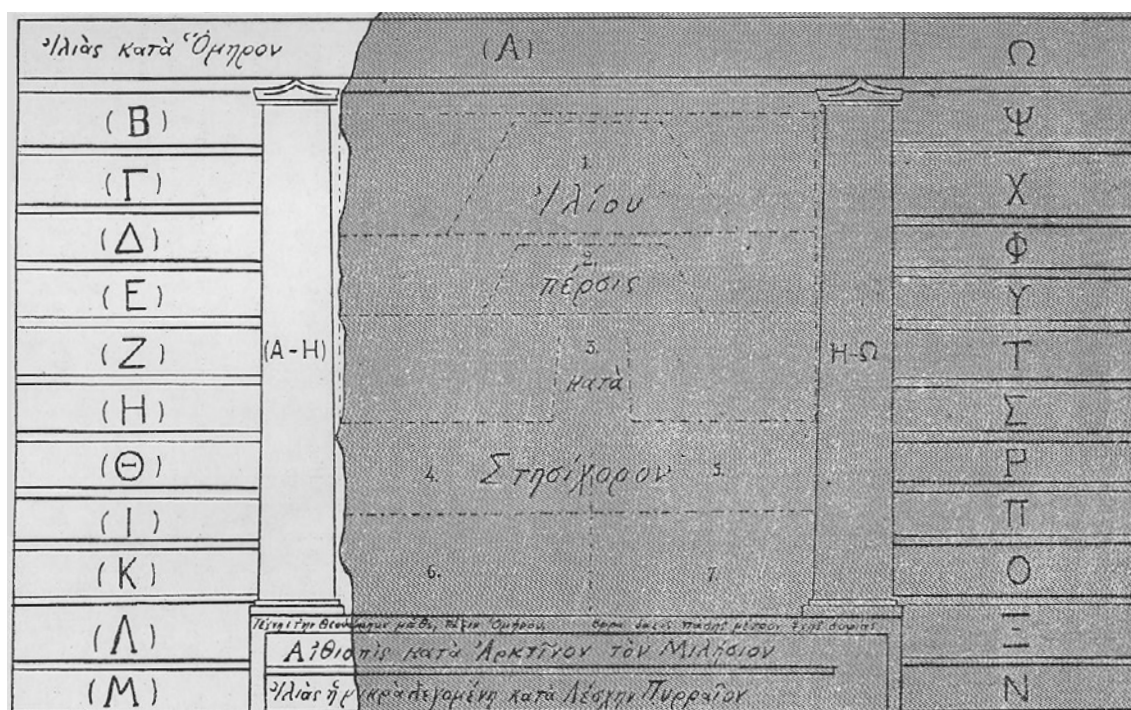 Ἰλιὰς κατὰ Ὅμηρον
(Α)
Ω
(Β)
(Γ)
(Δ)
(Ε)
(Ζ)
(Η)
(Θ)
(Ι)
(Κ)
(Λ)
(Μ)
(Α-Η)
1.
Ἰλίου
2.
πέρσις
3.
κατὰ
4. Στησίχορον 5.
6. 7.
Η-Ω
Ψ
Χ
Φ
Υ
Τ
Σ
Ρ
Π
Ο
Ξ
Ν
μάθε, τάξιν Ὁμήρου, ὄφρα δαεὶς πάσης μέτρον ἔχῃς σοφίας
Αἰθιοπὶς κατὰ Ἀρκτῖνον τὸν Μιλήσιον
Ἰλιὰς ἡ μικρὰ λεγομένη κατὰ Λέσχην Πυρραῖον